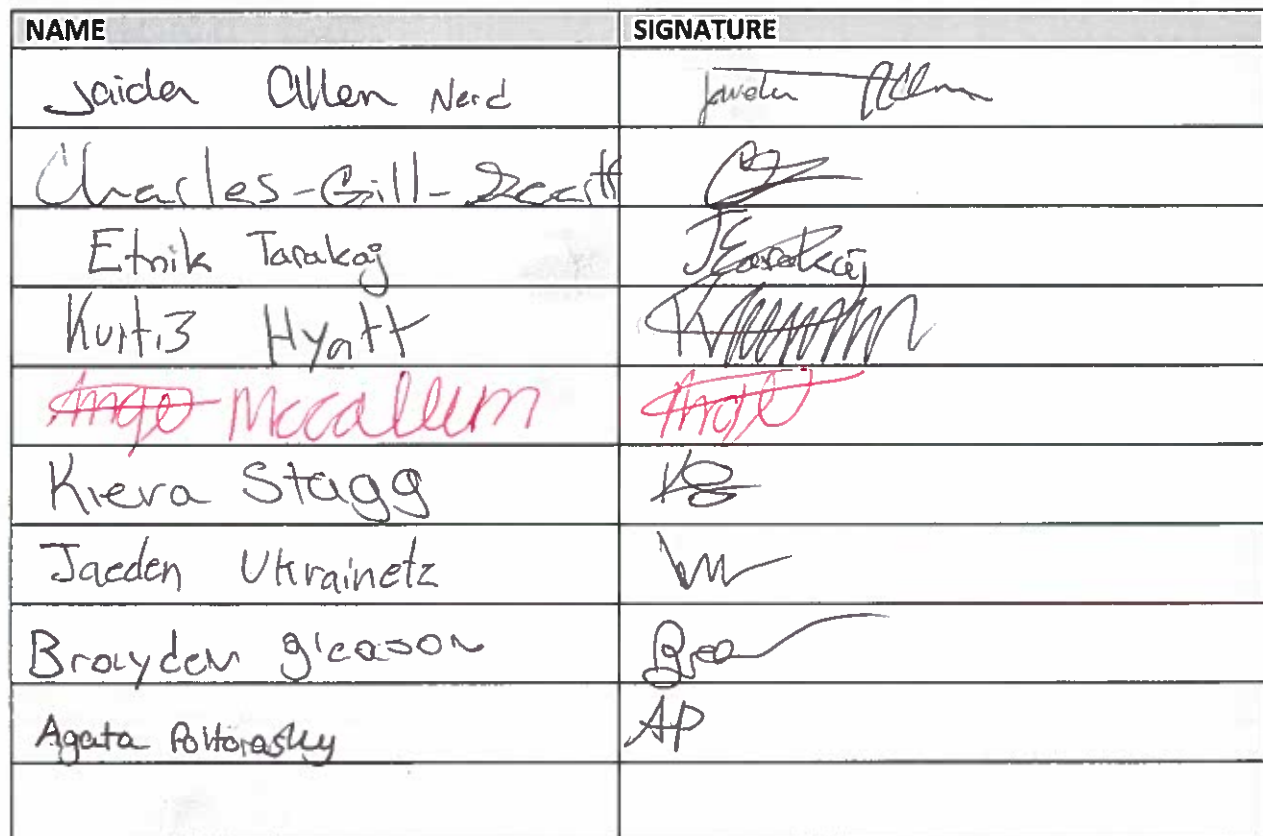 NAME SIGNATURE
Jaiden Allen Nerd Allen
Charles-Gill-
Etnik Tarakaj JETarakaj
Kurti3 Hyatt
Mccallum
Kiera Stagg KS
Jaeden Ukrainetz
Brayden gleason
Agata Poltorasky AP